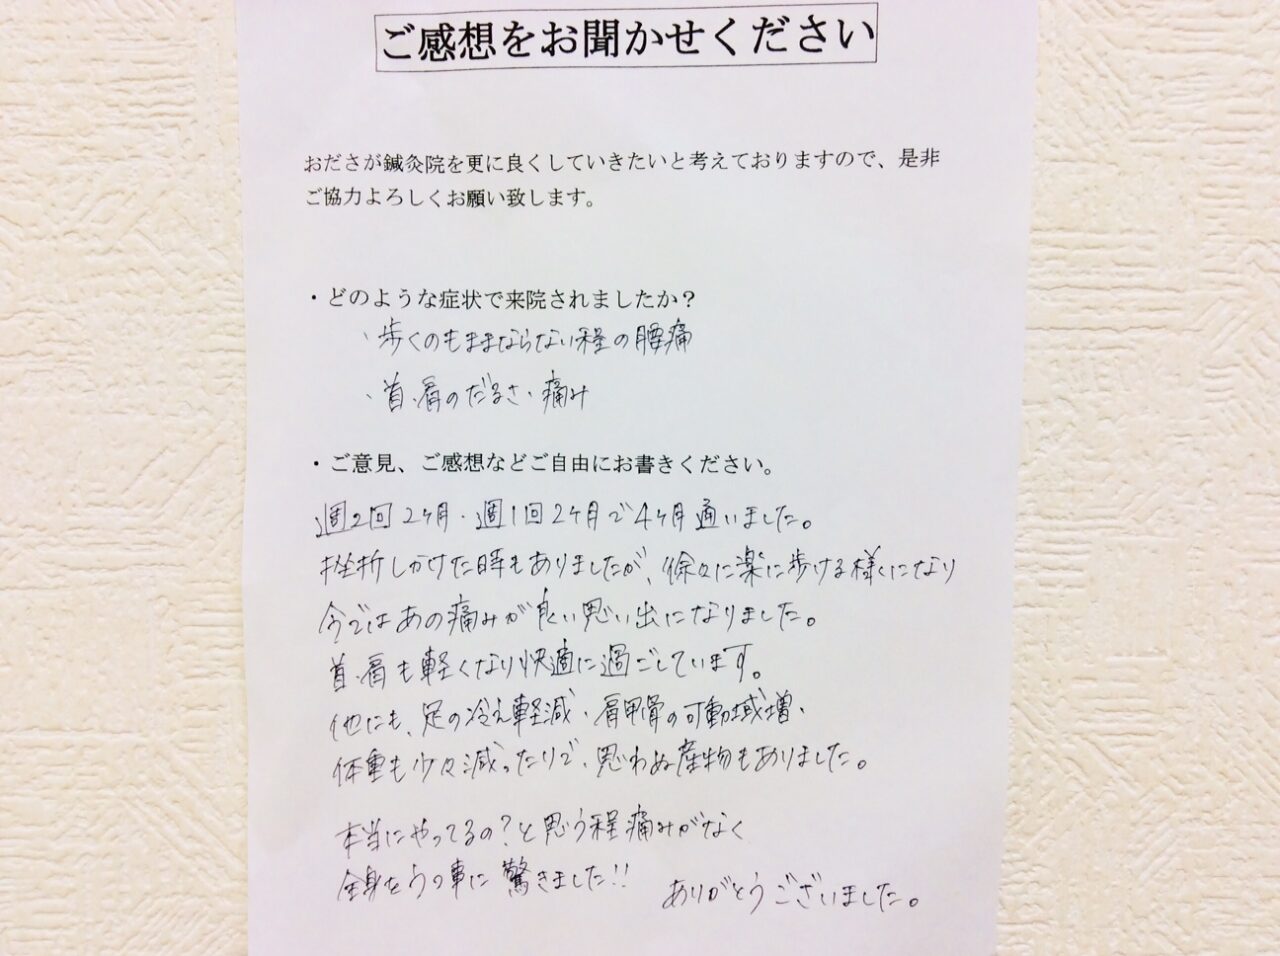 ご感想をお聞かせください
おださが鍼灸院を更に良くしていきたいと考えておりますので、是非
ご協力よろしくお願い致します。
・どのような症状で来院されましたか？
・歩くのもままならない程の腰痛
・首・肩のだるさ・痛み
・ご意見、ご感想などご自由にお書きください。
週2回2ヶ月・週1回2ヶ月で4ヶ月通いました。
挫折しかけた時もありましたが、徐々に楽に歩ける様になり
今ではあの痛みが良い思い出になりました。
首・肩も軽くなり快適に過ごしています。
他にも、足の冷え軽減・肩甲骨の可動域増・
体重も少々減ったりで、思わぬ産物もありました。
本当にやってるの？と思う程痛みがなく
全身をうつ事に驚きました!!
ありがとうございました。